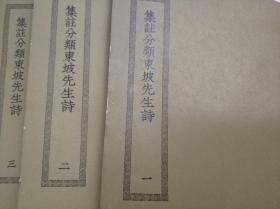 集註分類東坡先生詩
一
集註分類東坡先生詩
二
集註分類東坡先生詩
三